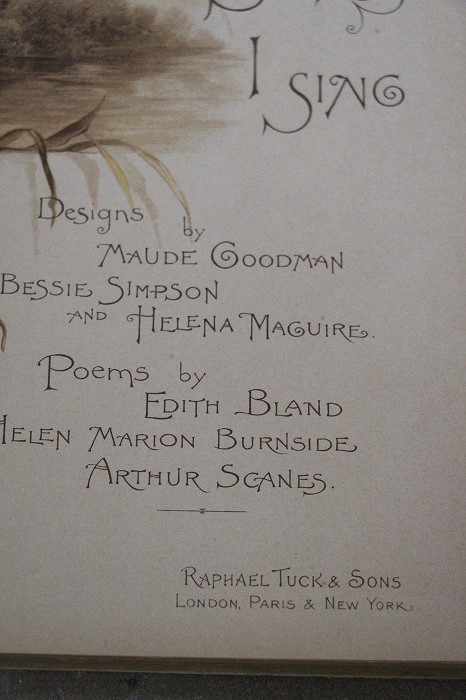 I SING
Designs by
MAUDE GOODMAN
BESSIE SIMPSON
AND HELENA MAGUIRE.
Poems by
EDITH BLAND
HELEN MARION BURNSIDE
ARTHUR SCANES.
RAPHAEL TUCK & SONS
LONDON, PARIS & NEW YORK.